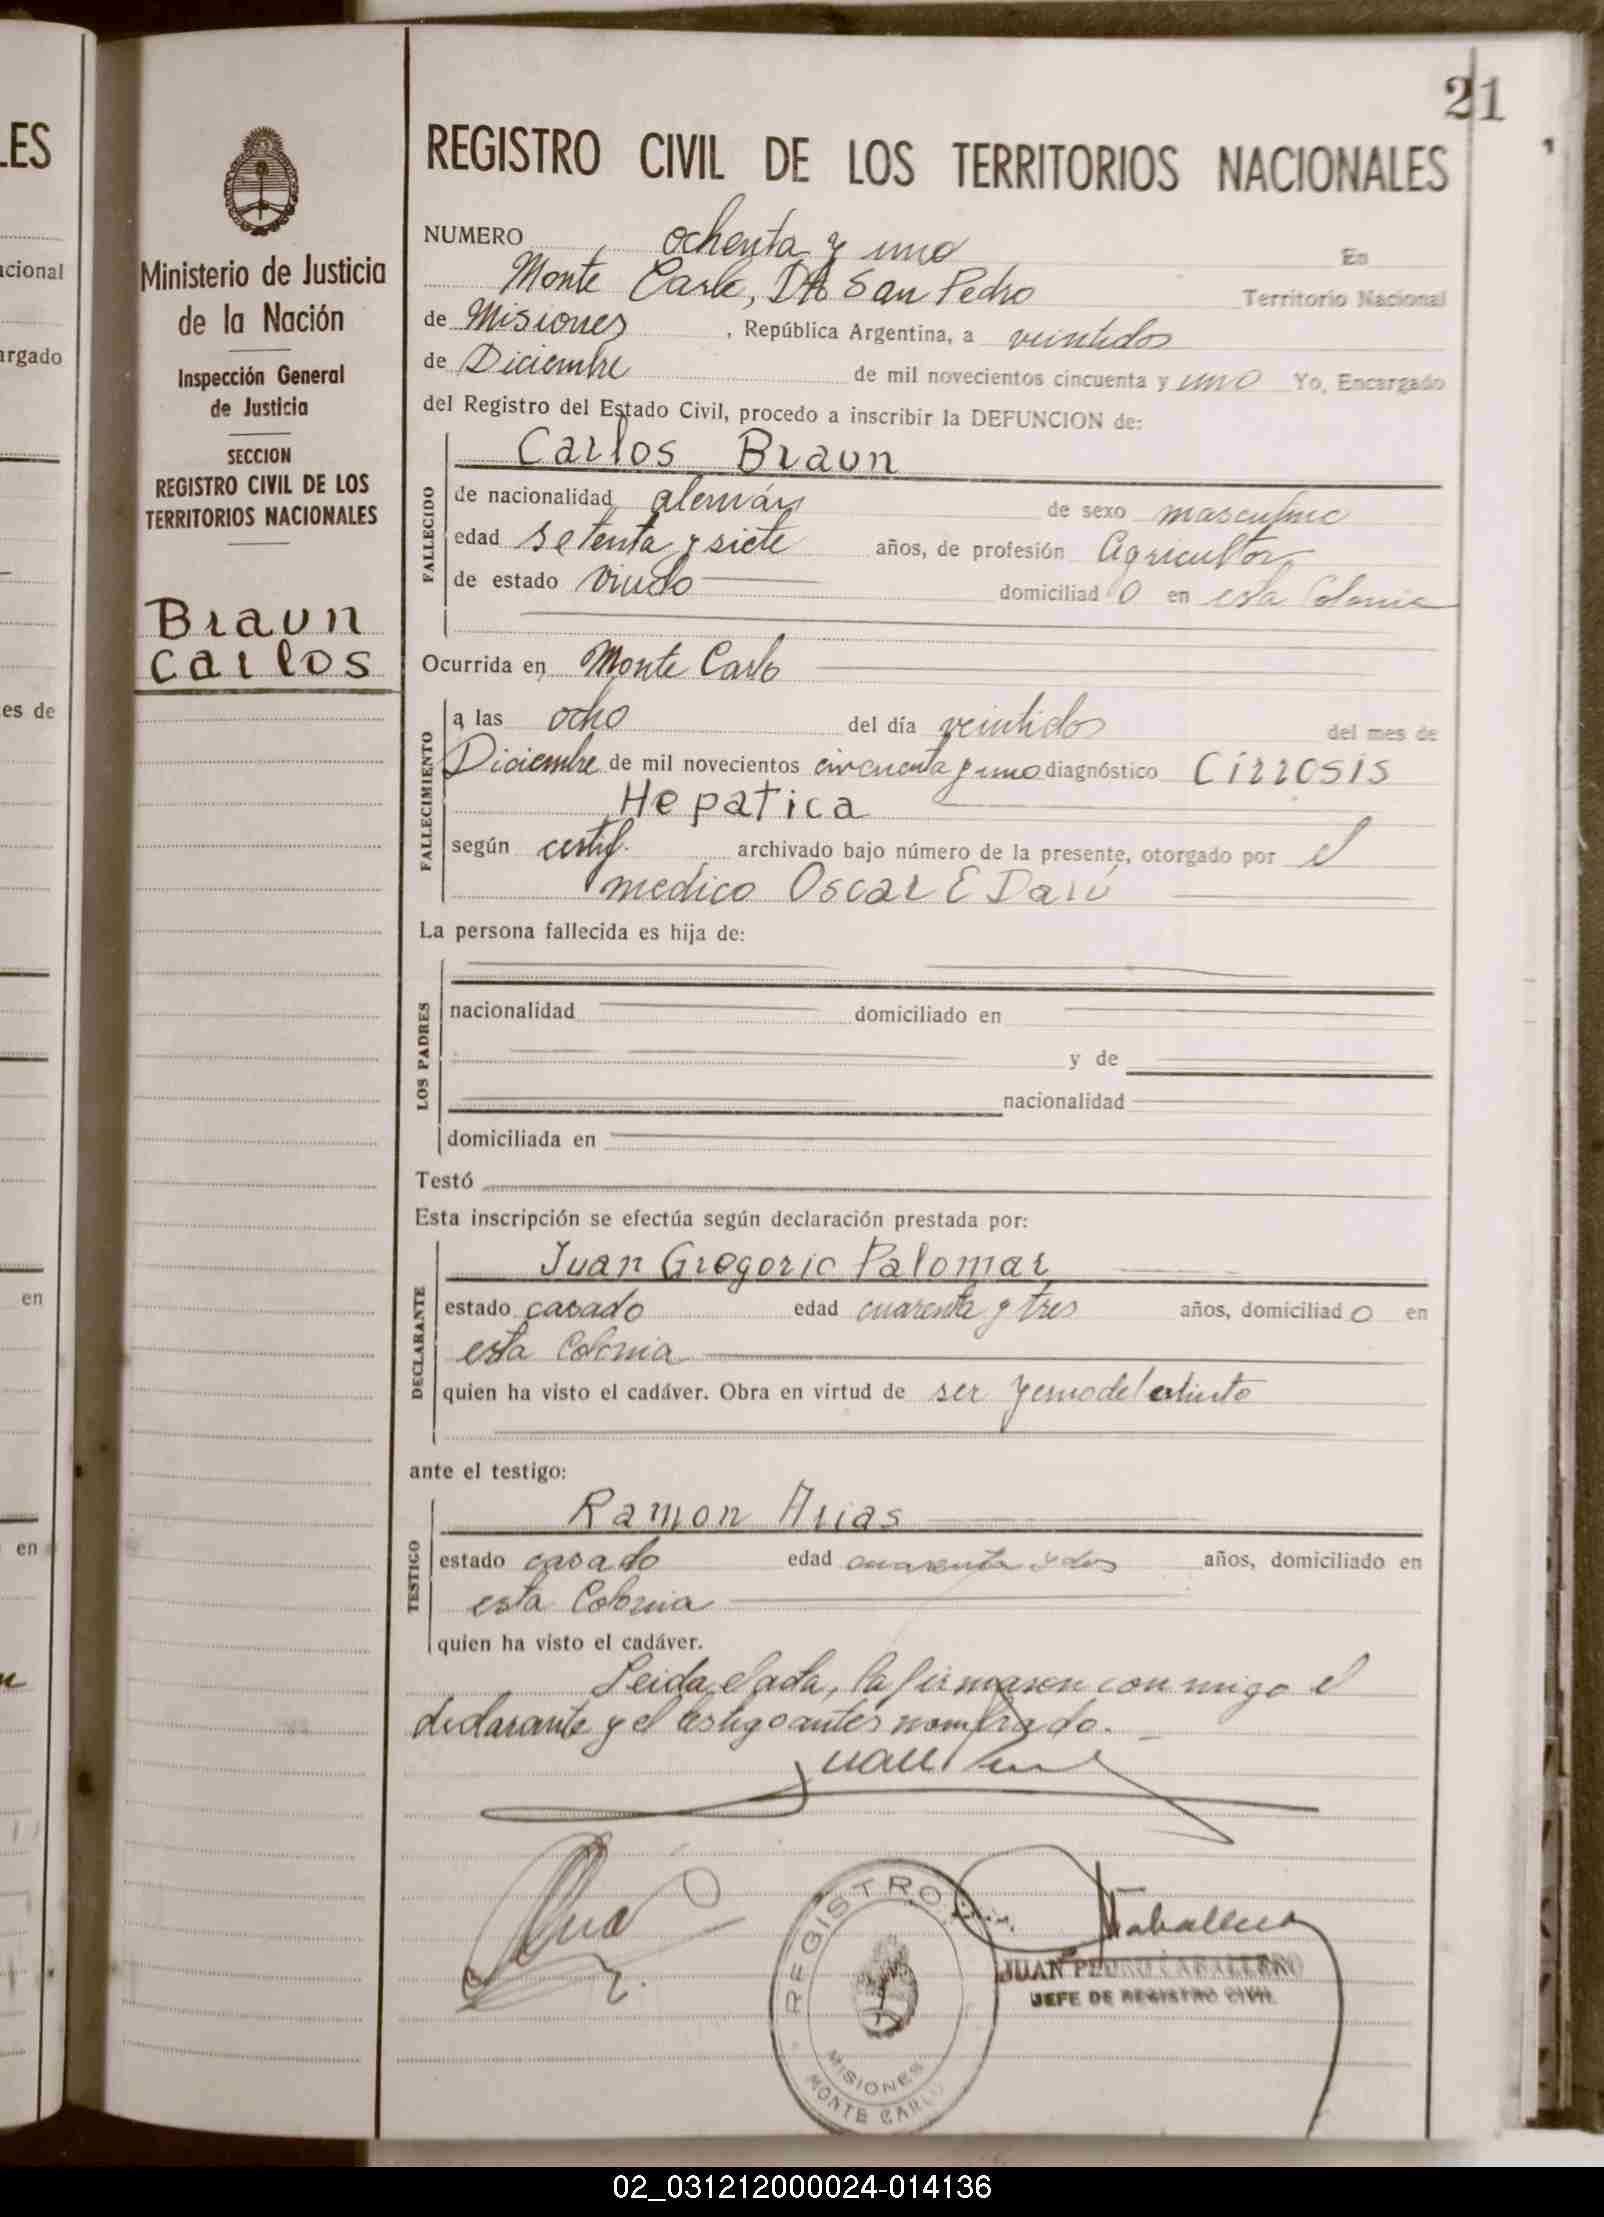 21
REGISTRO CIVIL DE LOS TERRITORIOS NACIONALES
Ministerio de Justicia
de la Nación
Inspección General
de Justicia
SECCION
REGISTRO CIVIL DE LOS
TERRITORIOS NACIONALES
Braun
Carlos
NUMERO ochenta y uno En
Monte Carlo, Dto San Pedro Territorio Nacional
de Misiones, República Argentina, a veintidos
de Diciembre de mil novecientos cincuenta y uno Yo, Encargado
del Registro del Estado Civil, procedo a inscribir la DEFUNCION de:
FALLECIDO
Carlos Braun
de nacionalidad alemán de sexo masculino
edad setenta y siete años, de profesión Agricultor
de estado viudo domiciliado en esta Colonia
Ocurrida en Monte Carlo
FALLECIMIENTO
a las ocho del día veintidos del mes de
Diciembre de mil novecientos cincuenta y uno diagnóstico Cirrosis
Hepatica
según certif. archivado bajo número de la presente, otorgado por el
medico Oscar E Darú
La persona fallecida es hija de:
LOS PADRES
nacionalidad domiciliado en
y de
nacionalidad
domiciliada en
Testó
Esta inscripción se efectúa según declaración prestada por:
DECLARANTE
Juan Gregorio Palomar
estado casado edad cuarenta y tres años, domiciliado en
esta Colonia
quien ha visto el cadáver. Obra en virtud de ser yerno del extinto
ante el testigo:
TESTIGO
Ramon Arias
estado casado edad cuarenta y dos años, domiciliado en
esta Colonia
quien ha visto el cadáver.
Leida el acta, la firmaron con migo el
declarante y el testigo antes nombrado.
REGISTRO
MISIONES
MONTE CARLO
Caballero
JUAN PEDRO CABALLERO
JEFE DE REGISTRO CIVIL
ES
acional
argado
es de
en
en
02_031212000024-014136